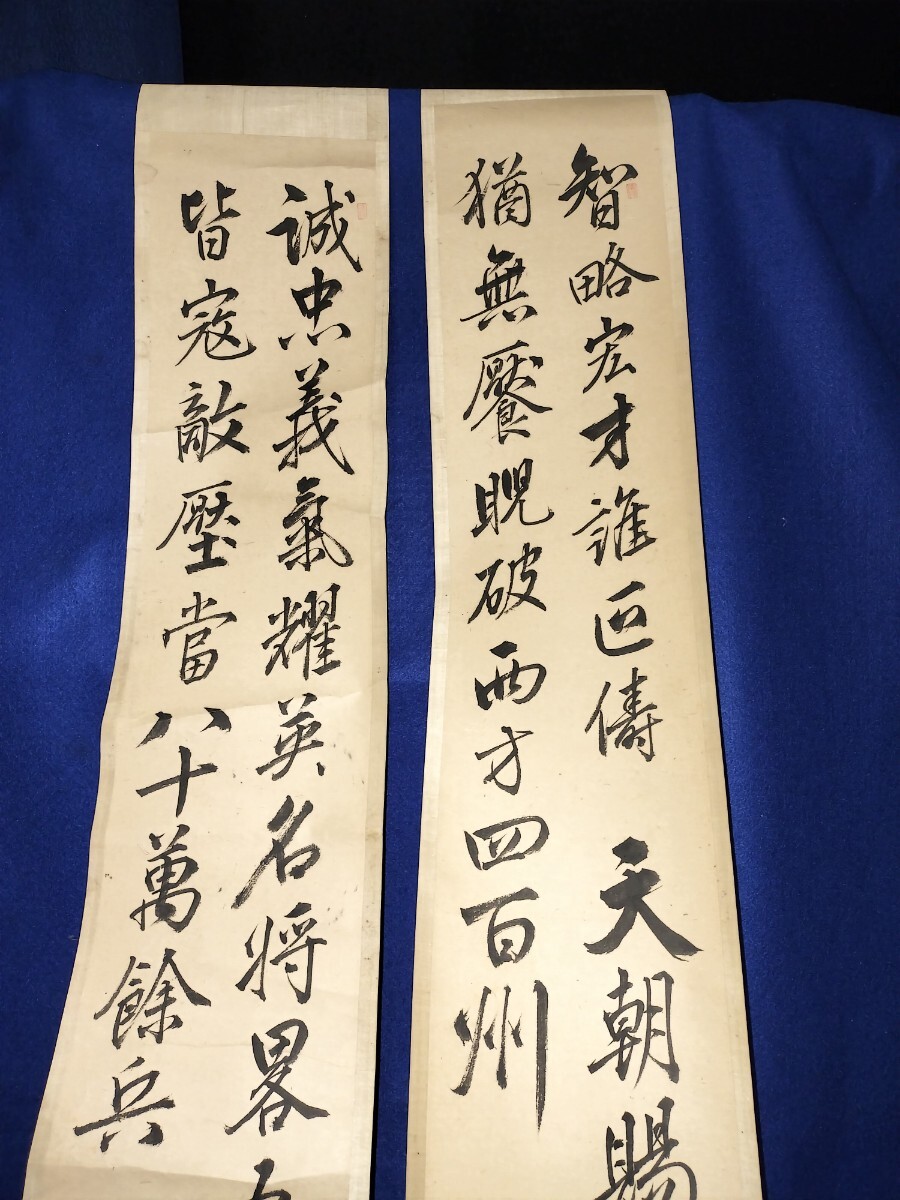 智略宏才誰匹儔　天朝賜
猶無饜睨破西才四百州
誠忠義氣耀英名将畧
皆寇敵壓當八十萬餘兵